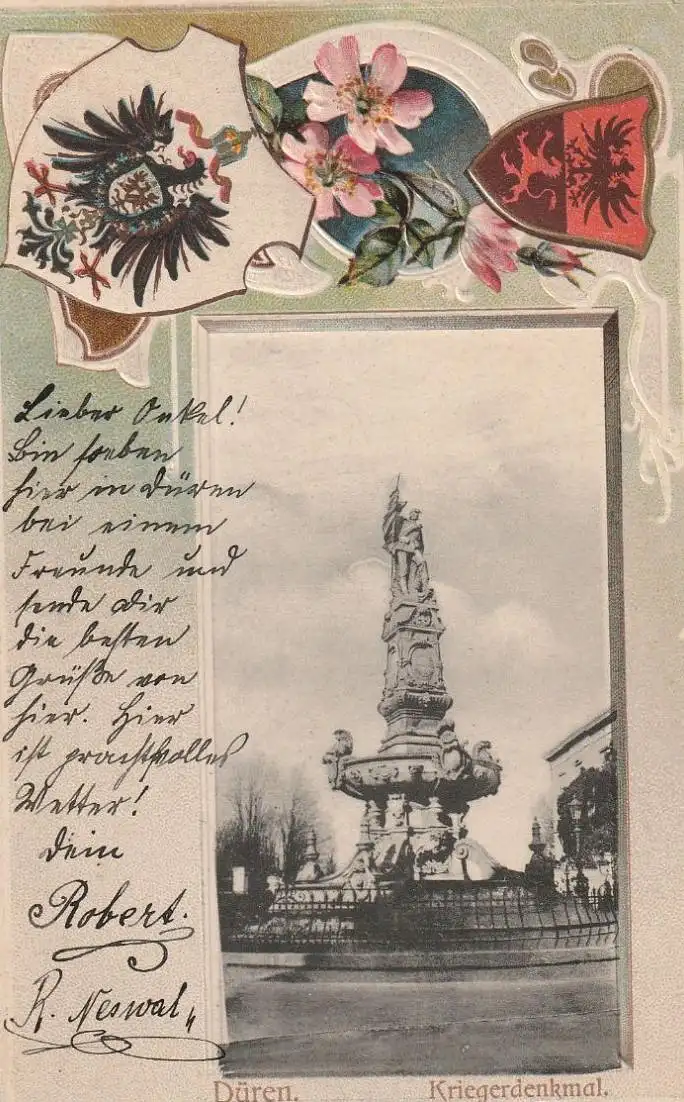 Lieber Onkel!
Bin soeben
hier in Düren
bei einem
Freunde und
sende Dir
die besten
Grüße von
hier. Hier
ist prachtvolles
Wetter!
Dein
Robert.
R. Neswal
Düren. Kriegerdenkmal.